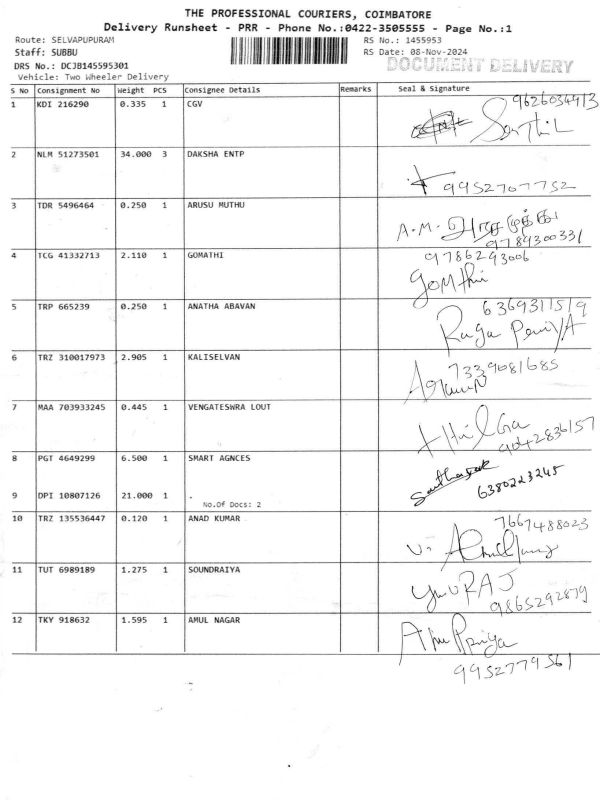 THE PROFESSIONAL COURIERS, COIMBATORE
Delivery Runsheet - PRR - Phone No.:0422-3505555 - Page No.:1
Route: SELVAPUPURAM RS No.: 1455953
Staff: SUBBU RS Date: 08-Nov-2024
DRS No.: DCJB145595301 DOCUMENT DELIVERY
Vehicle: Two Wheeler Delivery
S No Consignment No Weight PCS Consignee Details Remarks Seal & Signature
1 KDI 216290 0.335 1 CGV 9626034913
Senthil
2 NLM 51273501 34.000 3 DAKSHA ENTP
9952707752
3 TDR 5496464 0.250 1 ARUSU MUTHU
A.M. அரசு முத்து
9789300331
4 TCG 41332713 2.110 1 GOMATHI 9786293006
GOMthi
5 TRP 665239 0.250 1 ANATHA ABAVAN 6369311519
Raga PeriyA
6 TRZ 310017973 2.905 1 KALISELVAN 7339081685
7 MAA 703933245 0.445 1 VENGATESWRA LOUT
9042836157
8 PGT 4649299 6.500 1 SMART AGNCES
6380223245
9 DPI 10807126 21.000 1 .
No.Of Docs: 2
10 TRZ 135536447 0.120 1 ANAD KUMAR 7667488023
V.
11 TUT 6989189 1.275 1 SOUNDRAIYA
YuvRAJ
9865292879
12 TKY 918632 1.595 1 AMUL NAGAR
Anu Priya
9952779561